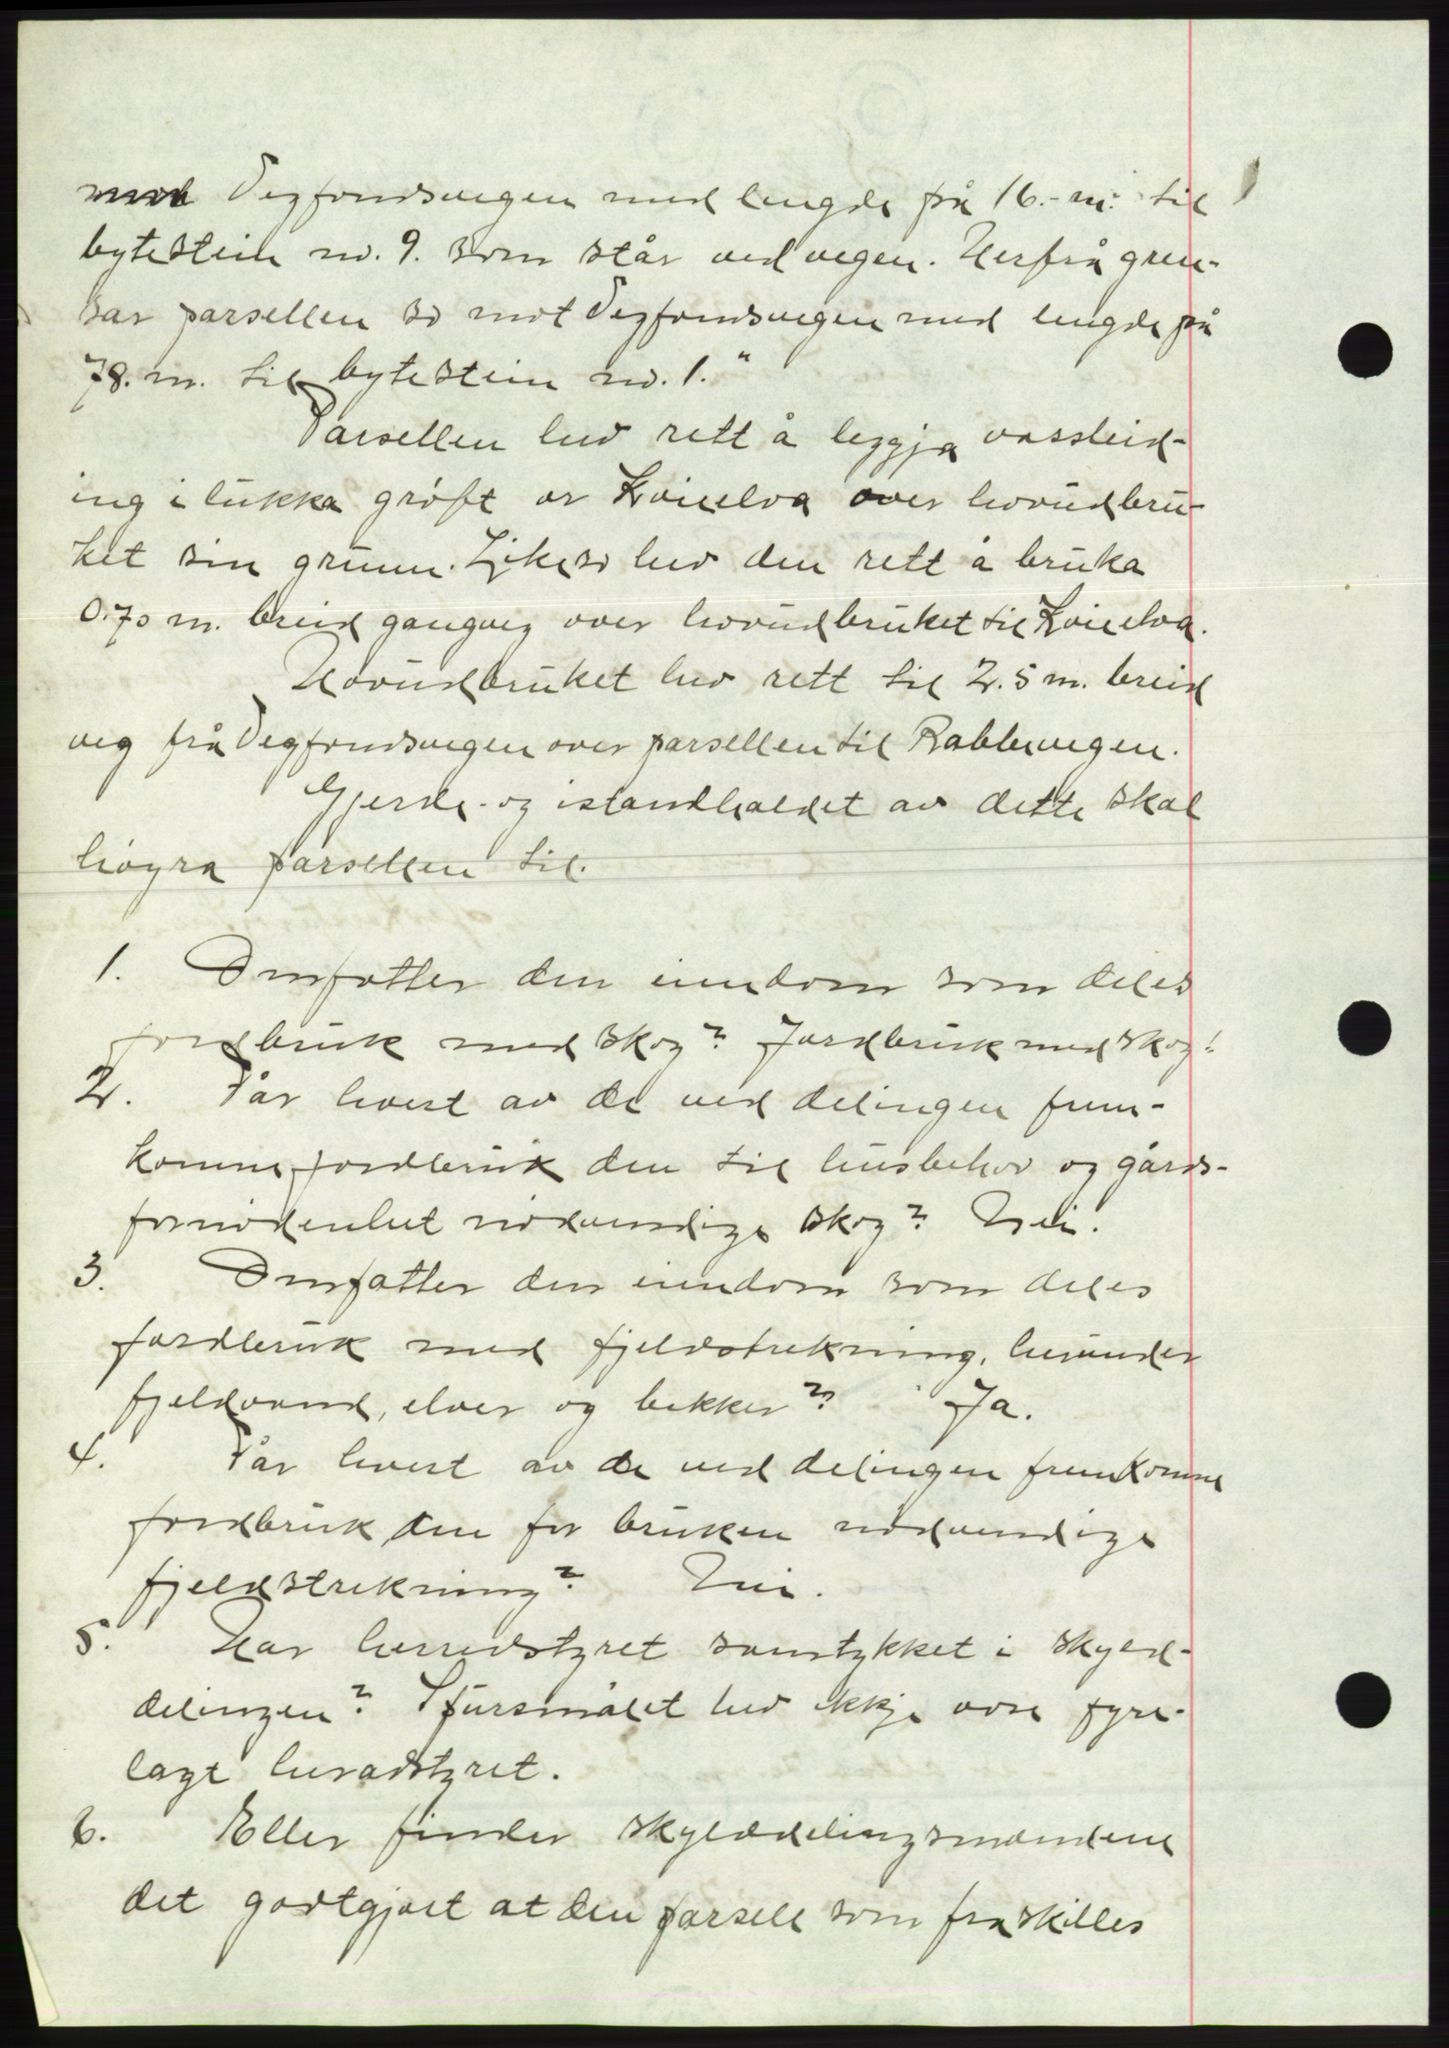 mot Vegfondsvegen med lengde på 16.- m. til
bytestein no. 9. som står ved vegen. Herfrå gren-
sar parsellen so mot Vegfondsvegen med lengde på
78. m. til bytestein no. 1."
Parsellen hev rett å leggja vassleid-
ing i lukka grøft or Kvielva over hovudbru-
ket sin grunn. Likeso hev den rett å bruka
0.70 m. breid gangveg over hovudbruket til Kvielva.
Hovudbruket hev rett til 2.5 m. breid
veg frå Vegfondsvegen over parsellen til Rabbevegen.
Gjerde- og istandhaldet av dette skal
høyra parsellen til.
1. Omfatter den eiendom som deles
jordbruk med skog? Jordbruk med skog!
2. Får hvert av de ved delingen frem-
komne jordbruk den til husbehov og gårds-
fornødenhet nødvendige skog? Nei.
3. Omfatter den eiendom som deles
jordbruk med fjeldstrekning, herunder
fjeldvand, elver og bekker? Ja.
4. Får hvert av de ved delingen fremkomne
jordbruk den for bruken nødvendige
fjeldstrekning? Nei.
5. Har herredstyret samtykket i skyld-
delingen? Spursmålet hev ikkje vore fyre-
lagt heradstyret.
6. Eller finder skylddelingsmændene
det godtgjort at den parsell som fraskilles